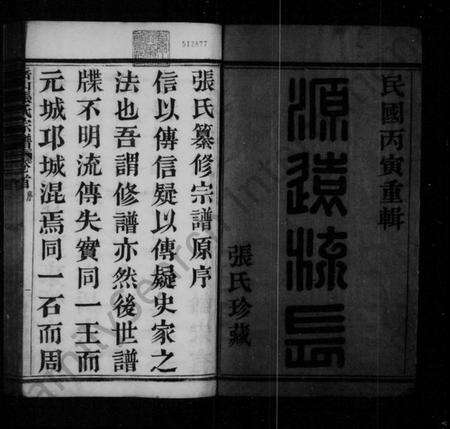 民國丙寅重輯
源遠流長
張氏珍藏
512877
張氏纂修宗譜原序
信以傳信疑以傳疑史家之
法也吾謂修譜亦然後世譜
牒不明流傳失實同一王而
元城邛城混焉同一石而周
張氏宗譜